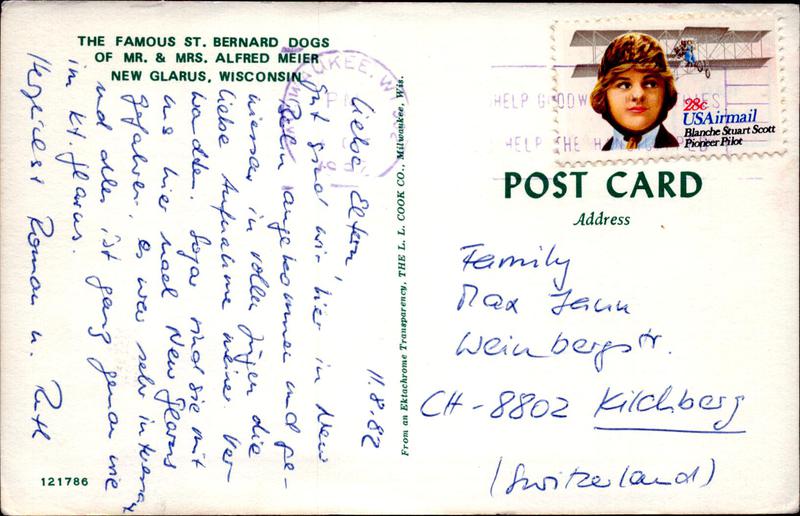 THE FAMOUS ST. BERNARD DOGS
OF MR. & MRS. ALFRED MEIER
NEW GLARUS, WISCONSIN
11.8.82
Liebe Eltern,
gut sind wir hier in New
Berlin angekommen und ge-
niessen in vollen Zügen die
liebe Aufnahme meiner Ver-
wandten. Sogar sind sie mit
uns hier nach New Glarus
gefahren. es war sehr interessant
und alles ist ganz genau wie
im Kt. Glarus.
Herzlichst Roman u. Ruth
121786
From an Ektachrome Transparency, THE L. L. COOK CO., Milwaukee, Wis.
28c
USAirmail
Blanche Stuart Scott
Pioneer Pilot
HELP GOODW
HELP THE
POST CARD
Address
Family
Max Jenn
Weinbergstr.
CH-8802 Kilchberg
(Switzerland)